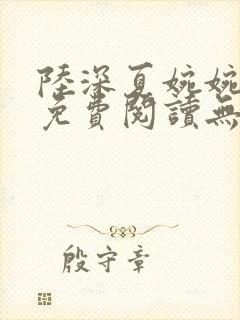 陸深夏婉婉
免費閱讀無
殷守章